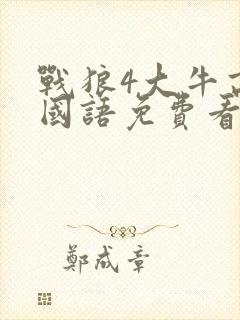 戰狼4大牛
國語免費看
鄭成章